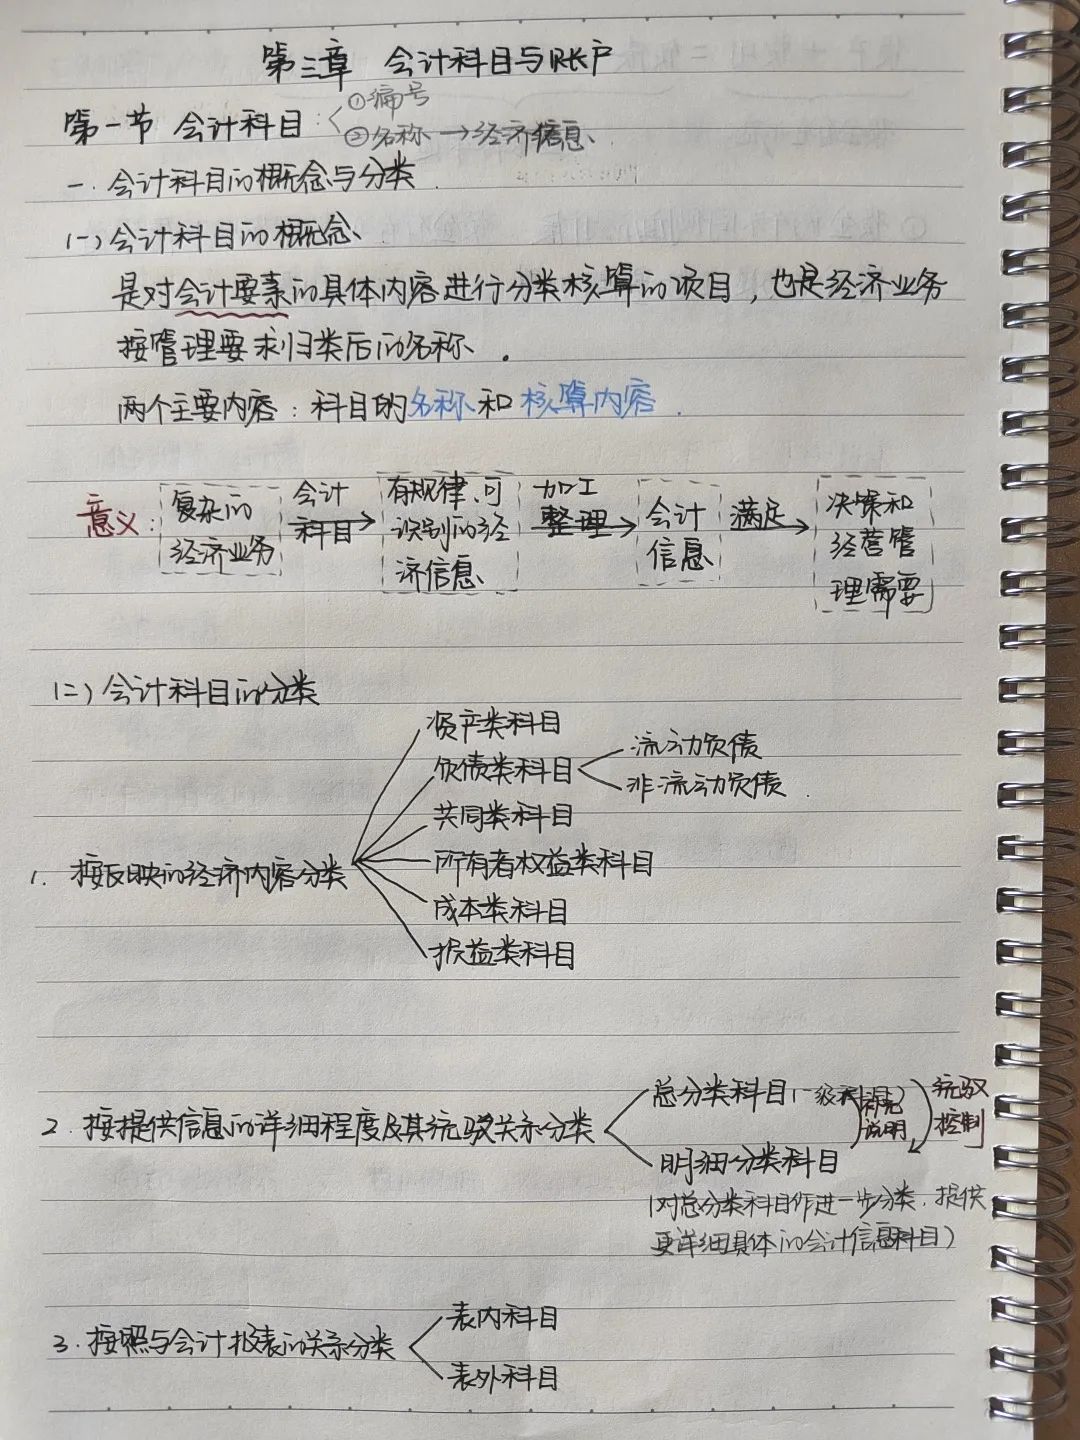 第三章 会计科目与账户
第一节 会计科目：①编号
②名称→经济信息.
一.会计科目的概念与分类.
(一)会计科目的概念.
是对会计要素的具体内容进行分类核算的项目，也是经济业务
按管理要求归类后的名称.
两个主要内容：科目的名称和核算内容.
意义：复杂的经济业务 会计科目→ 有规律、可识别的经济信息 加工整理→ 会计信息 满足→ 决策和经营管理需要
(二)会计科目的分类
1.按反映的经济内容分类
资产类科目
负债类科目
流动负债
非流动负债.
共同类科目
所有者权益类科目
成本类科目
损益类科目
2.按提供信息的详细程度及其统驭关系分类
总分类科目(一级科目)
补充说明
统驭控制
明细分类科目
(对总分类科目作进一步分类、提供
更详细具体的会计信息科目)
3.按照与会计报表的关系分类
表内科目
表外科目